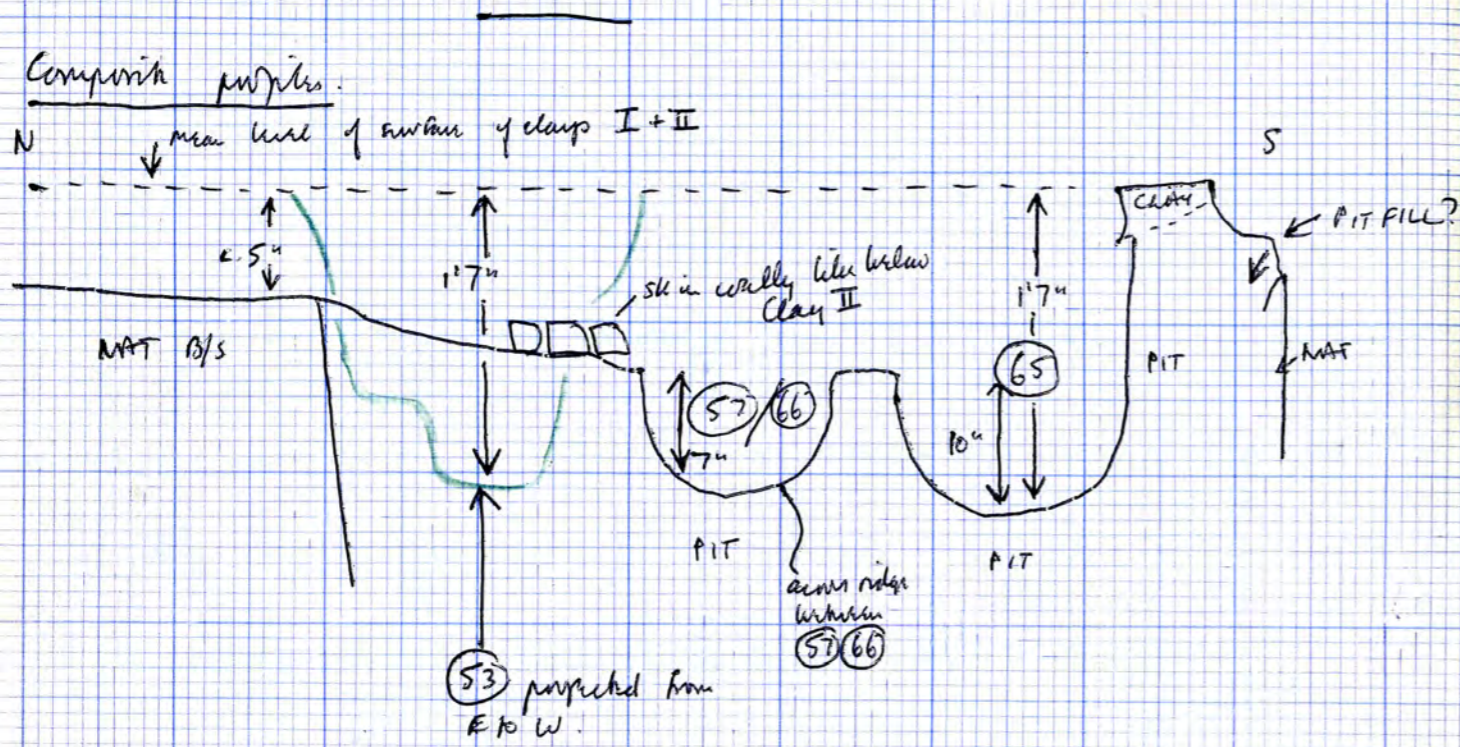 Composite profiles.
N
mean level of surface of clays I + II
S
CLAY
PIT FILL?
c. 5"
1'7"
below
Clay II
1'7"
NAT B/S
65
PIT
NAT
57/66
7"
10"
PIT
PIT
across ridge
between
57 66
53 projected from
E to W.